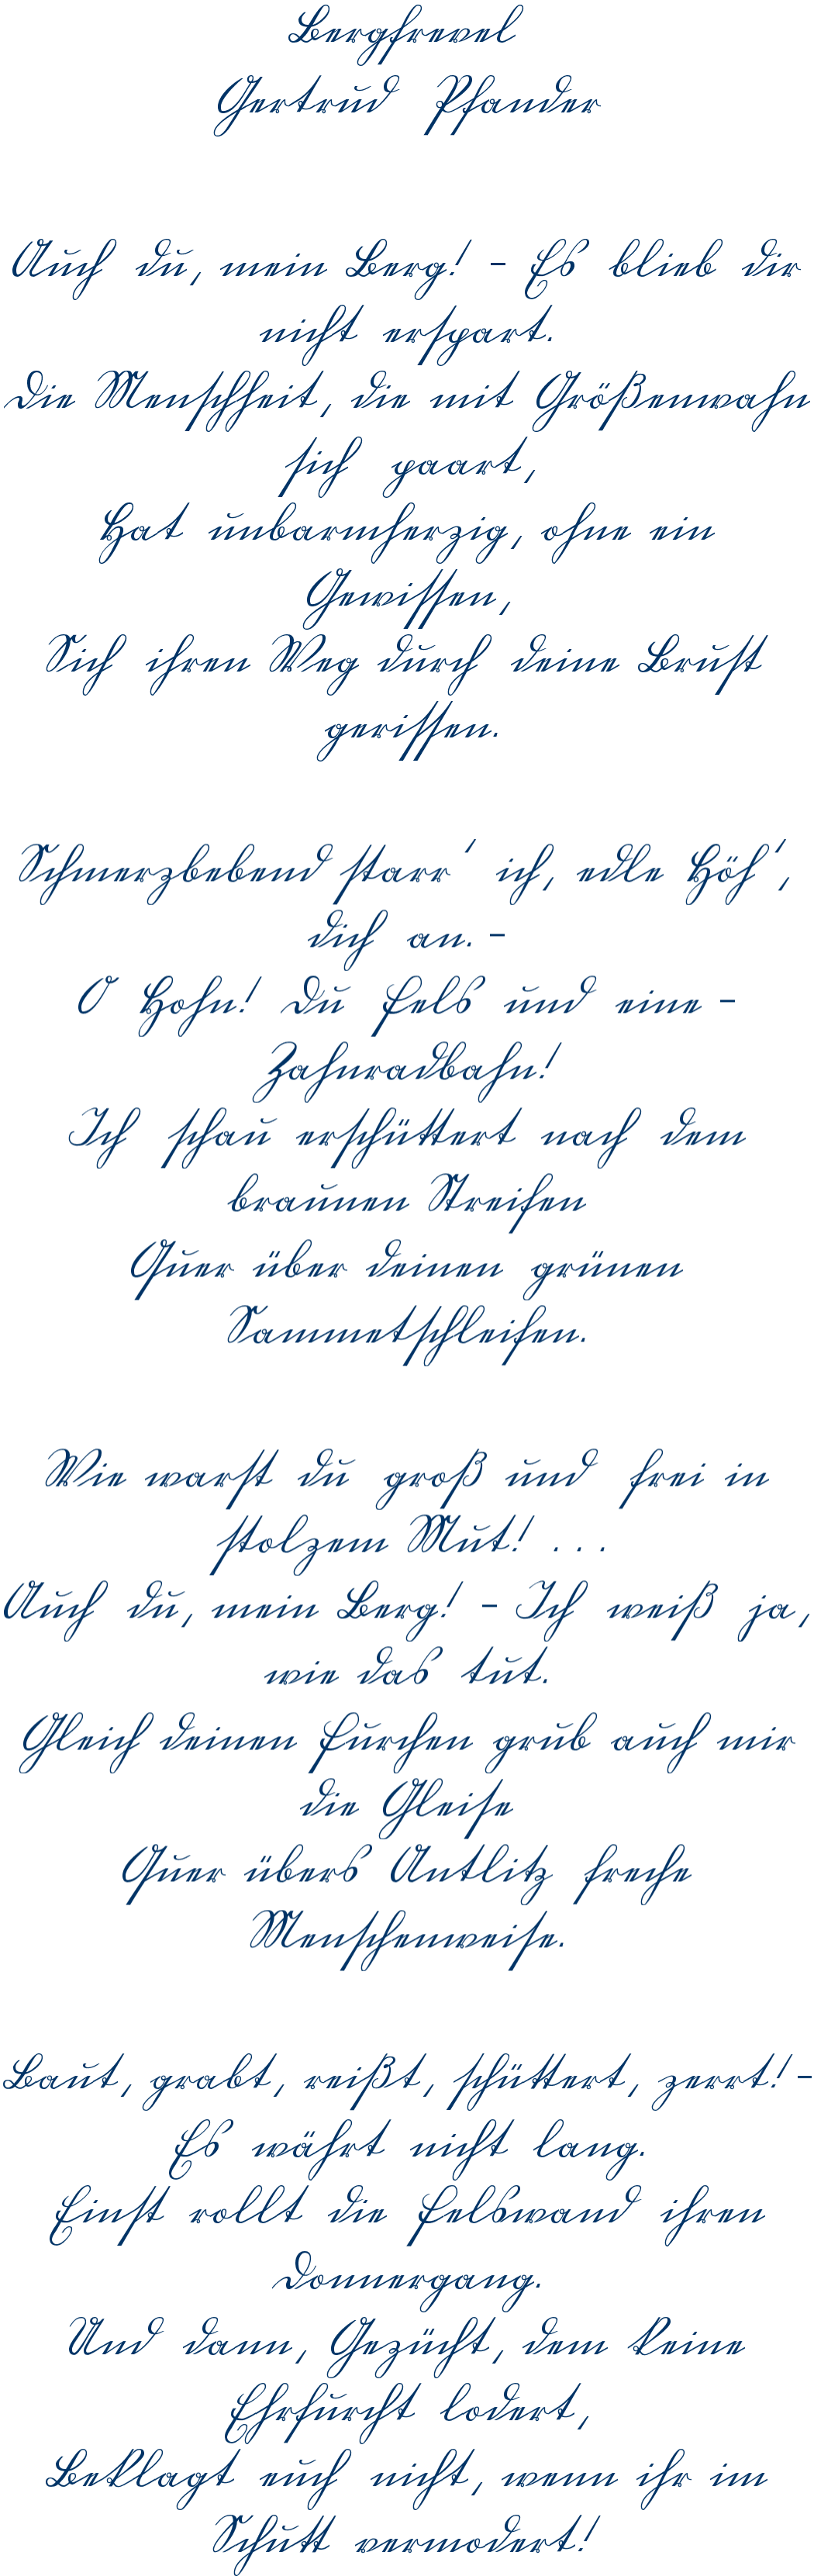 Bergfrevel
Gertrud Pfander
Auch du, mein Berg! – Es blieb dir
nicht erspart.
Die Menschheit, die mit Größenwahn
sich paart,
Hat unbarmherzig, ohne ein
Gewissen,
Sich ihren Weg durch deine Brust
gerissen.
Schmerzbebend starr' ich, edle Höh',
dich an. –
O Hohn! Du Fels und eine –
Zahnradbahn!
Ich schau erschüttert nach dem
braunen Streifen
Quer über deinen grünen
Sammetschleifen.
Wie warst du groß und frei in
stolzem Mut! ...
Auch du, mein Berg! – Ich weiß ja,
wie das tut.
Gleich deinen Furchen grub auch mir
die Gleise
Quer übers Antlitz freche
Menschenweise.
Baut, grabt, reißt, schüttert, zerrt! –
Es währt nicht lang.
Einst rollt die Felswand ihren
Donnergang.
Und dann, Gezücht, dem keine
Ehrfurcht lodert,
Beklagt euch nicht, wenn ihr im
Schutt vermodert!